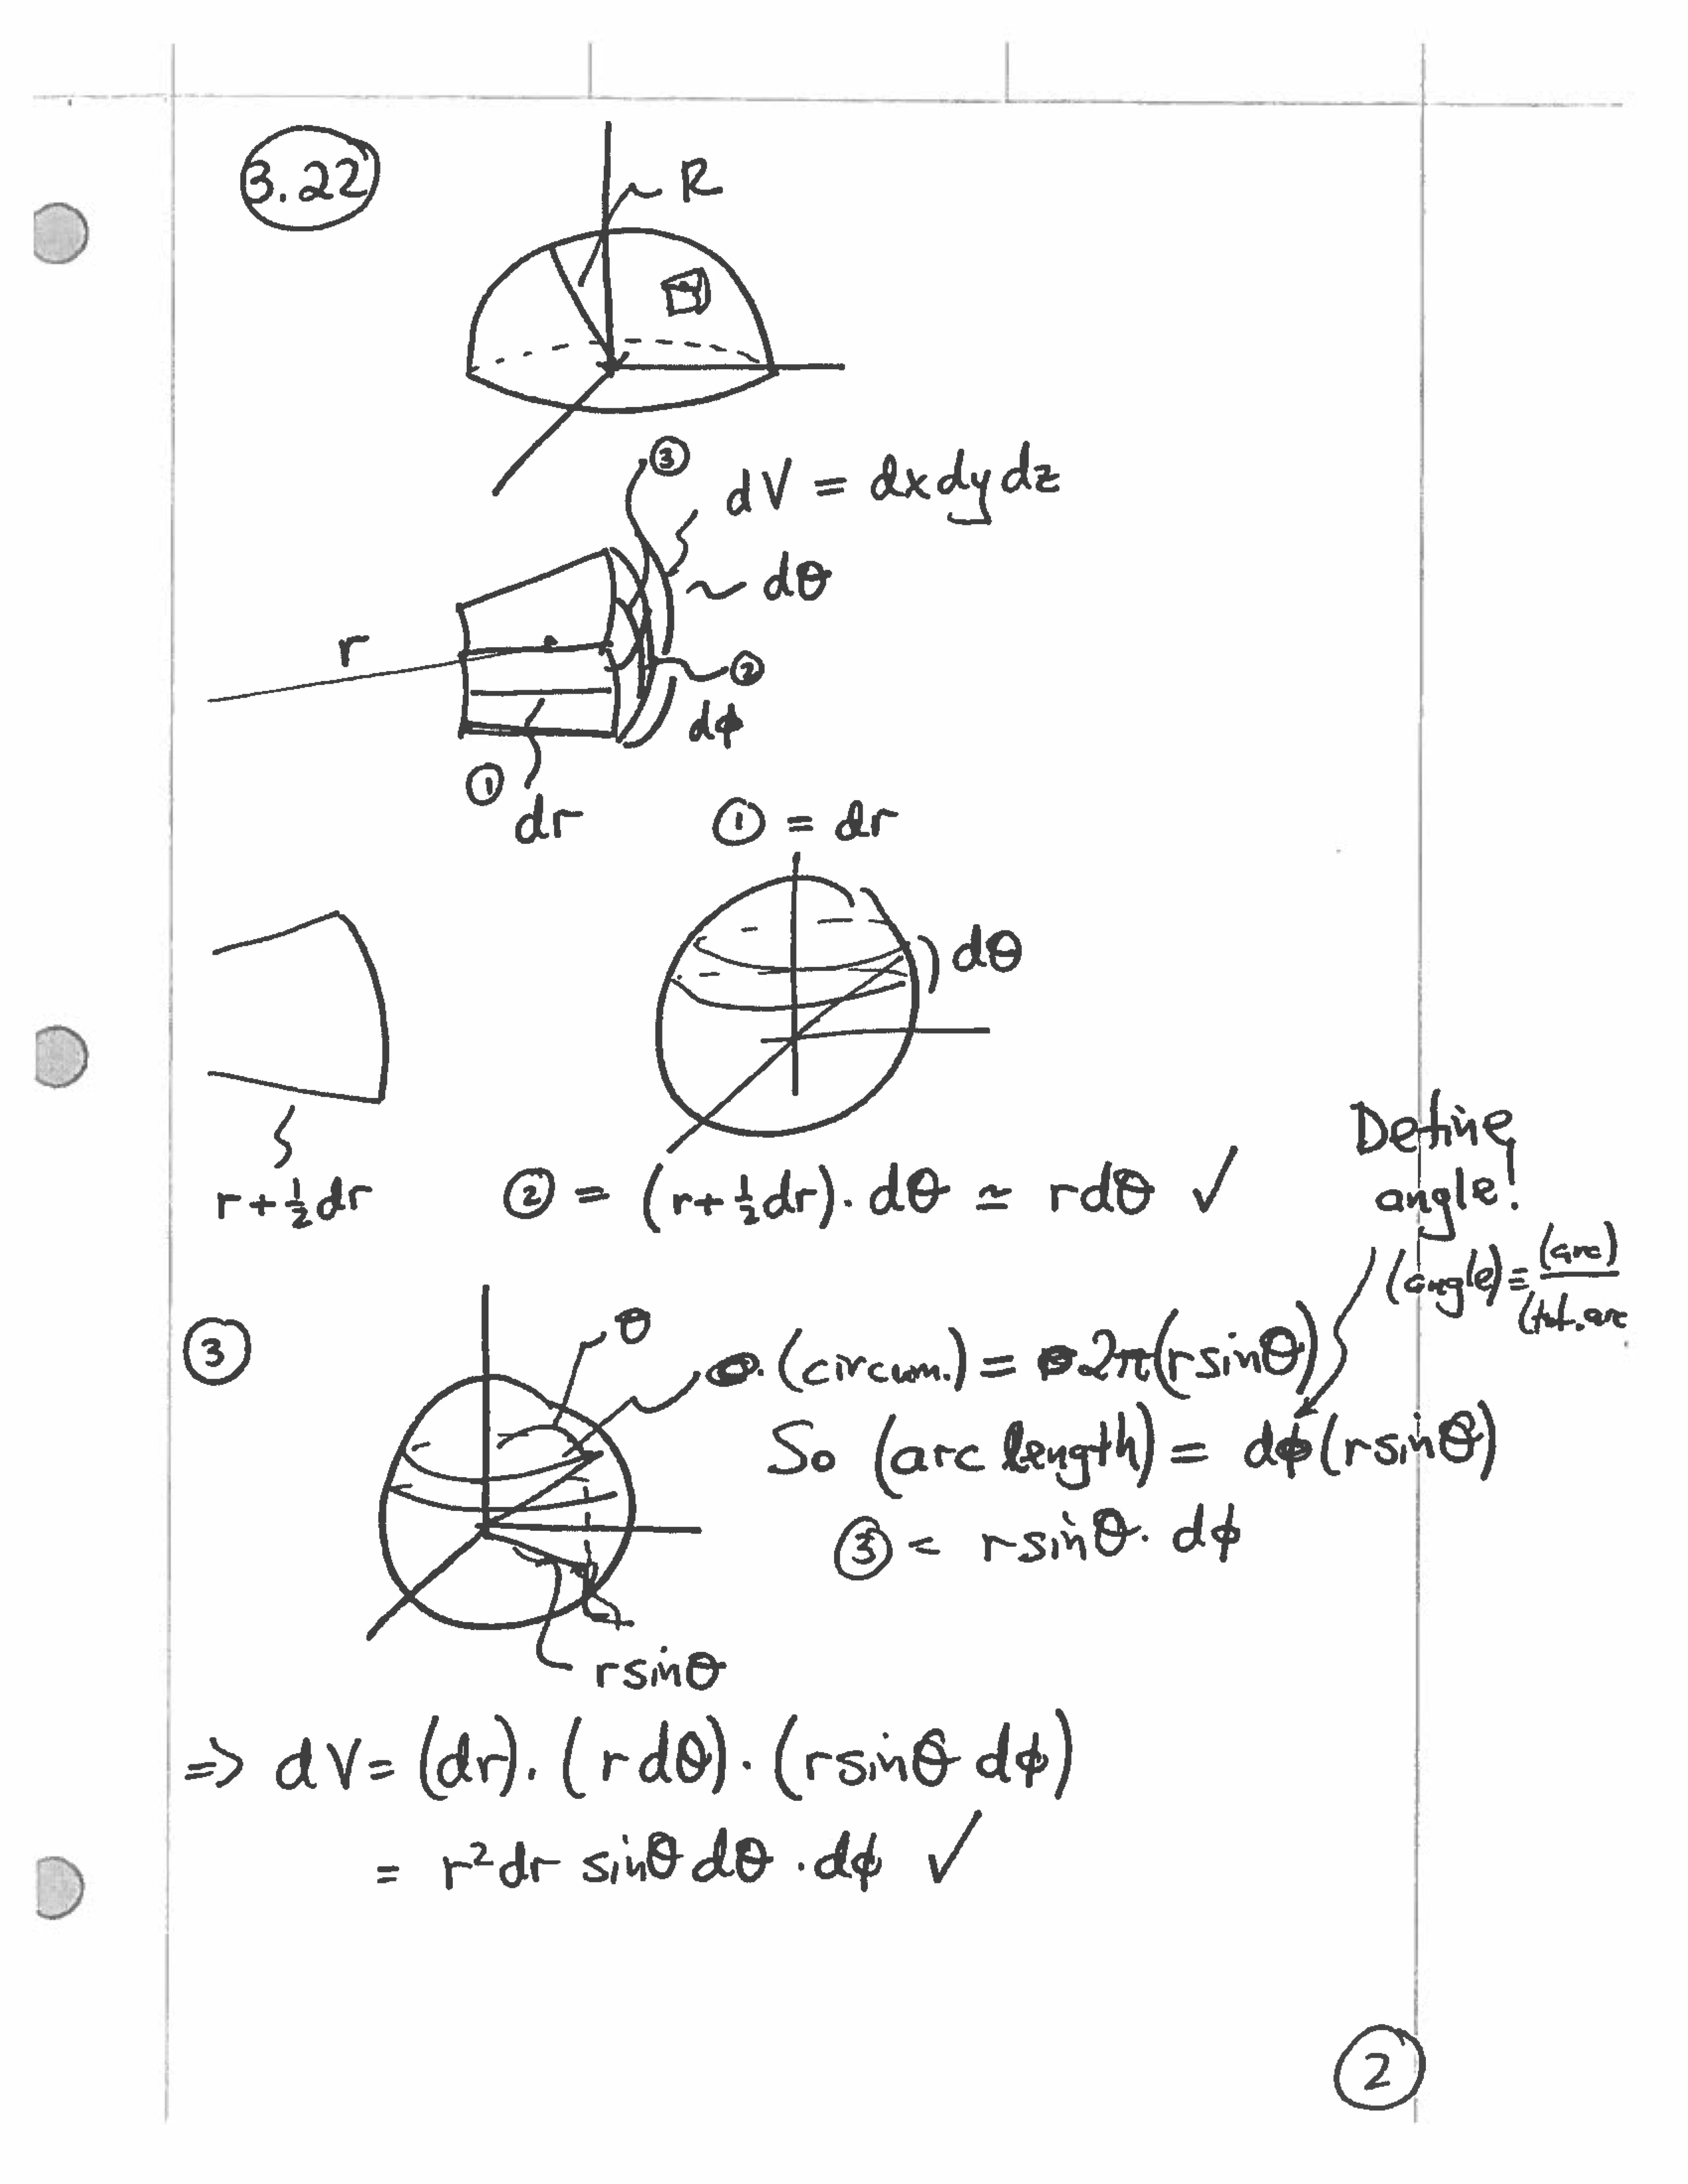 3.22
R
③
dV = dxdydz
~ dθ
r
②
dϕ
①
dr
① = dr
dθ
r+½dr
② = (r+½dr)·dθ ≃ rdθ ✓
Define
angle!
(angle) = (arc)/(tot. arc
③
θ
(circum.) = 2π(rsinθ)
So (arc length) = dϕ(rsinθ)
③ = rsinθ· dϕ
rsinθ
=> dV = (dr)·(rdθ)·(rsinθ dϕ)
= r²dr sinθ dθ ·dϕ ✓
2